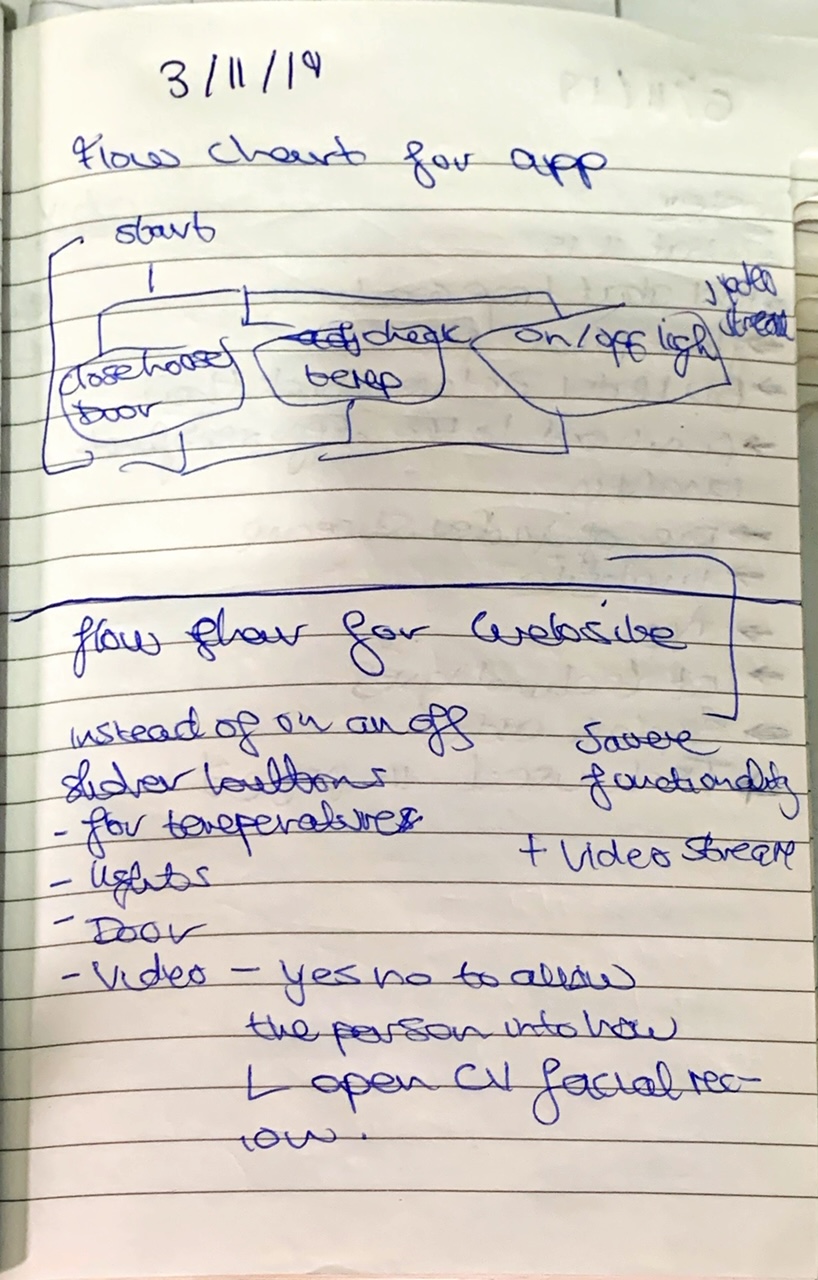 3/11/19
Flow chart for app
start
video
stream
close house
Door
check
temp
on/off light
flow char for website
instead of on an off
slider buttons
- for temperatures
- lights
- Door
- Video - yes no to allow
the person into how
open CV facial rec-
Same
functionality
+ Video Stream